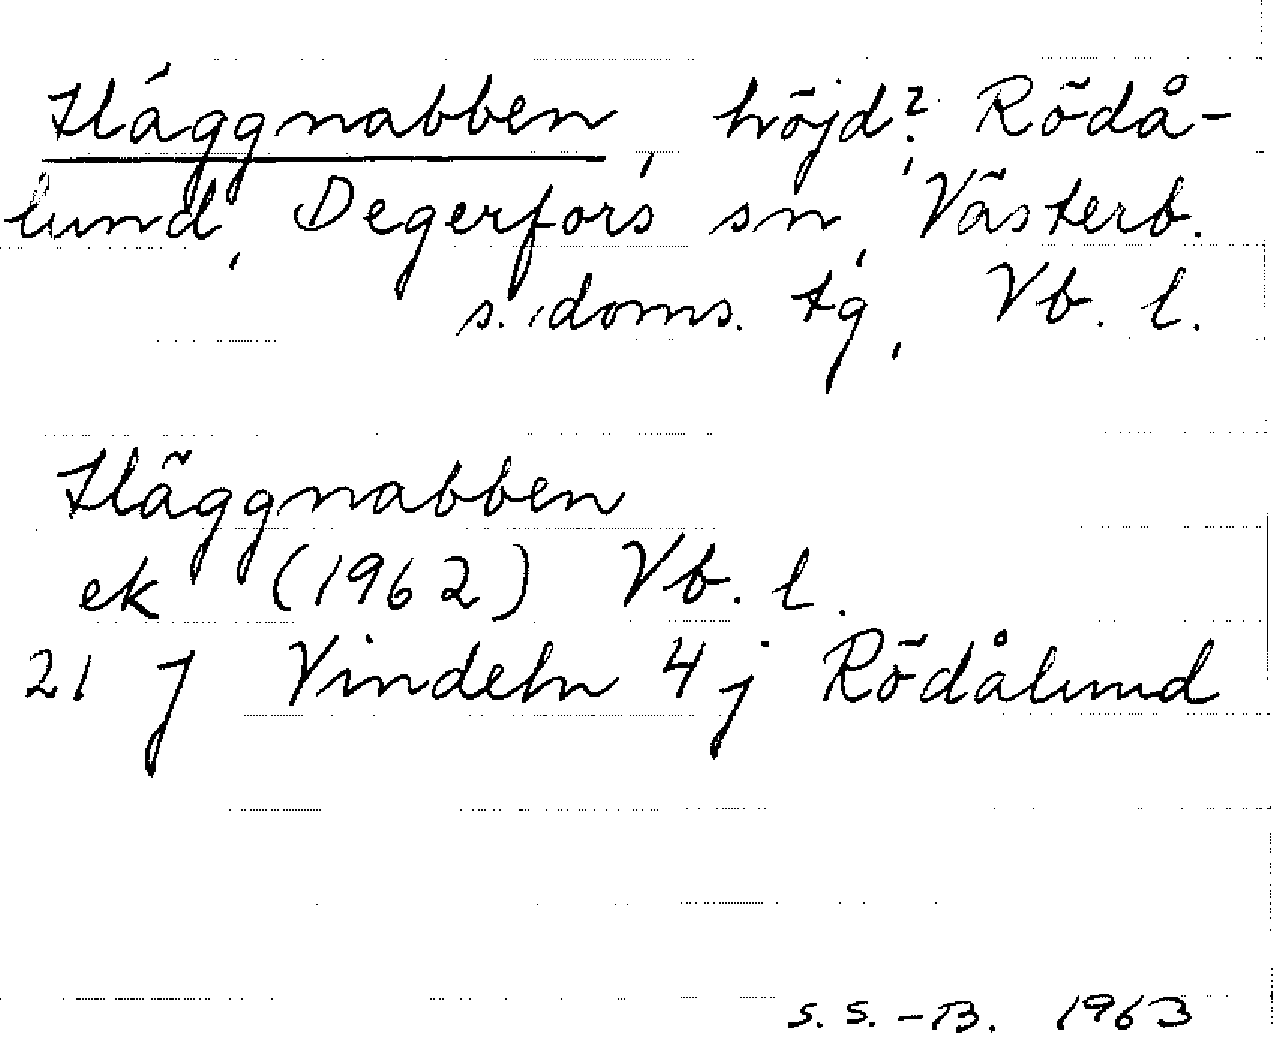 Häggnabben, höjd?, Rödå-
lund, Degerfors sn, Västerb.
s. doms. tg, Vb. l.
Häggnabben
ek (1962) Vb. l.
21 J Vindeln 4 j Rödålund
S. S.-B. 1963